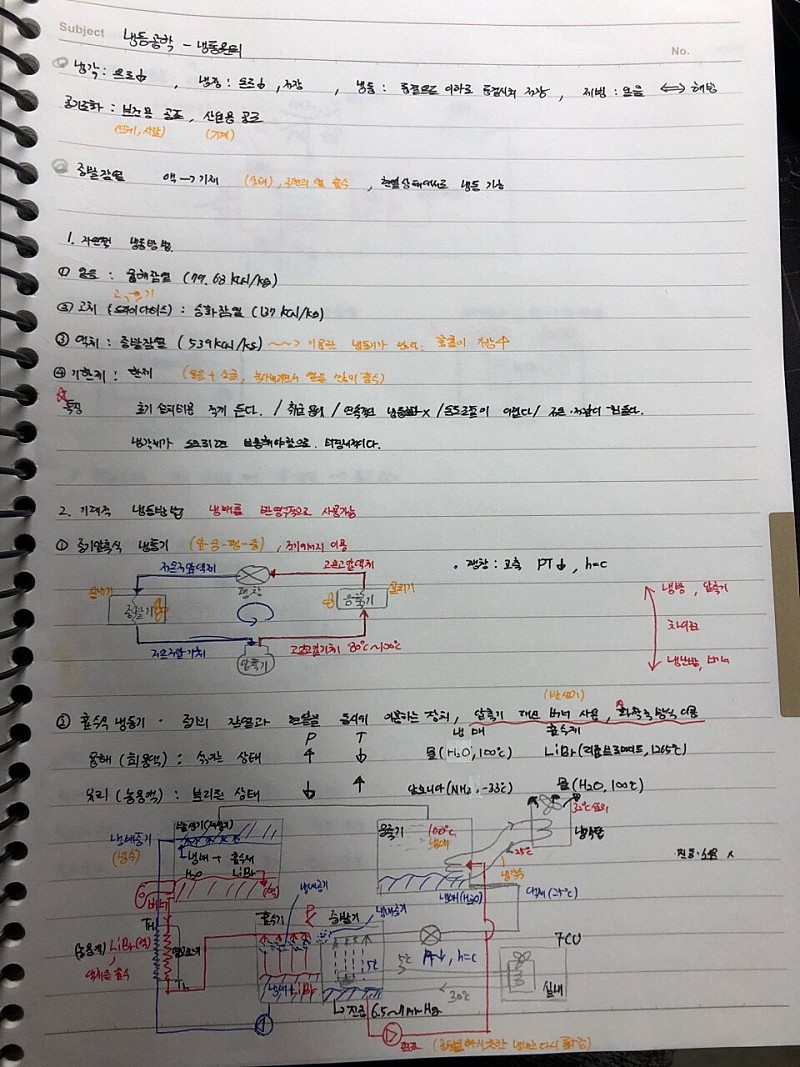 Subject 냉동공학 - 냉동원리
No.
냉각: 온도↓ , 냉장: 온도↓, 저장 , 냉동: 동결온도 이하로 동결시켜 저장, 제빙: 얼음 ⟺ 해빙
공기조화: 보건용 공조, 산업용 공조
(인체, 사람) (기계)
증발잠열 액→기체 (상태), 주변의 열 흡수,
1. 자연적 냉동방법.
① 얼음: 융해잠열 (79.68 kcal/kg)
고→기
② 고체 (드라이아이스): 승화잠열 (137 kcal/kg)
③ 액체: 증발잠열 (539 kcal/kg) ~~> 이용한 냉동기가 많다. 효율이 가장↑
④ 기한제: 한제 (얼음 + 소금,
특징 초기 설치비용 적게 든다. / 취급 용이 / 연속적인 냉동효과 x / 온도조절이 어렵다 /
2. 기계적 냉동방법 냉매를 반영구적으로 사용가능
① 증기압축식 냉동기 (압-응-팽-증), 전기에너지 이용
저온저압액체
고온고압액체
• 팽창: 교축 PT↓, h=c
실내기
증발기
팽창
응축기
실외기
냉방, 압축기
차이점
냉난방, 버너
저온저압기체
압축기
고온고압기체 80℃~100℃
(발생기)
② 흡수식 냉동기 · 증기의 잠열과 현열을 동시에 이용하는 장치, 압축기 대신 버너 사용, 화학적 방식 이용
P T 냉매 흡수제
용해 (희용액): 섞이는 상태 ↑ ↓ 물(H₂O, 100℃) LiBr(리튬브로마이드, 1265℃)
유리 (농용액): 분리된 상태 ↓ ↑ 암모니아(NH₃, -33℃) 물(H₂O, 100℃)
냉매증기
발생기
냉매 + 흡수제
H₂O LiBr
버너
응축기
100℃
냉매
냉매(H₂O)
32℃
냉각탑
25℃
냉각수
진동·소음 x
(농용액) LiBr(액)
열교환기
흡수기
냉매증기
P
증발기
냉매증기
냉매+LiBr
5℃
PT↓, h=c
5℃
30℃
FCU
실내
↳ 진공 6.5~7mmHg
펌프